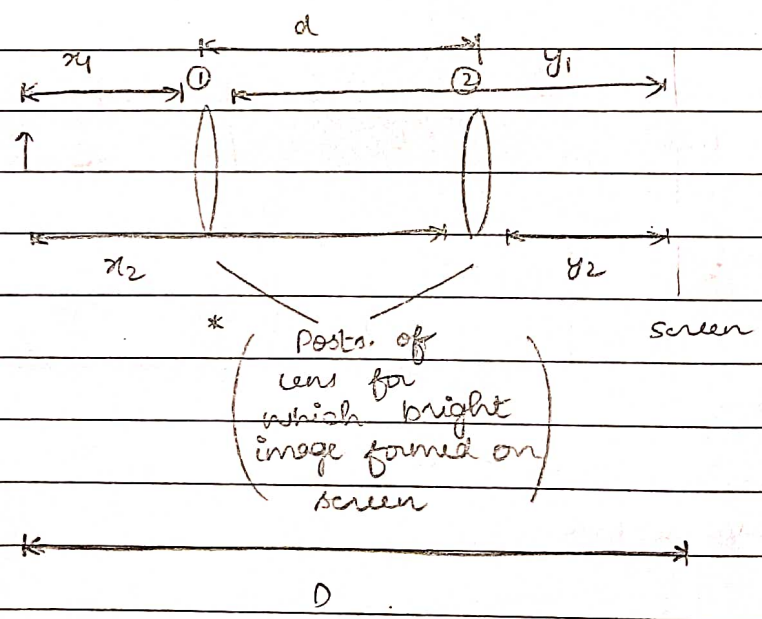 d
x1
y1
①
②
x2
y2
*
Screen
Posts. of
lens for
which bright
image formed on
screen
D